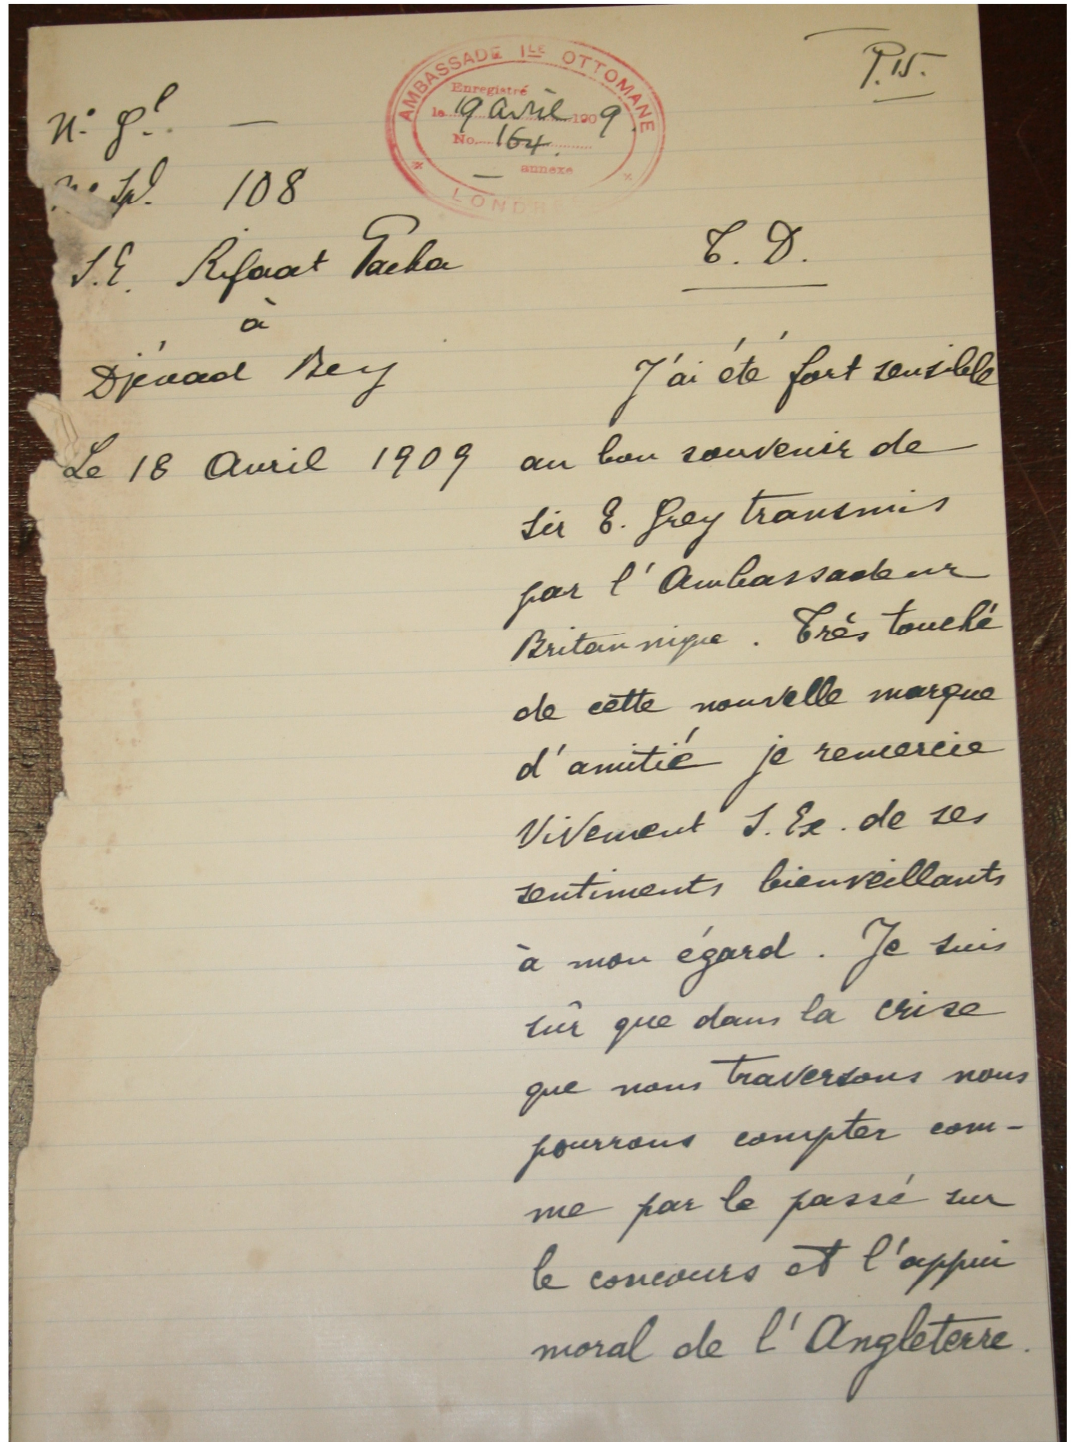 P. 15.
AMBASSADE ILE OTTOMANE
Enregistré
le 19 avril 1909.
No. 164.
annexe
LONDRES
N° gl. —
N° Spl. 108
S.E. Rifaat Pacha
à
Djévad Bey
Le 18 Avril 1909
T. D.
J'ai été fort sensible
au bon souvenir de
Sir E. Grey transmis
par l'Ambassadeur
Britannique. Très touché
de cette nouvelle marque
d'amitié je remercie
vivement S. Ex. de ses
sentiments bienveillants
à mon égard. Je suis
sûr que dans la crise
que nous traversons nous
pourrons compter com-
me par le passé sur
le concours et l'appui
moral de l'Angleterre.